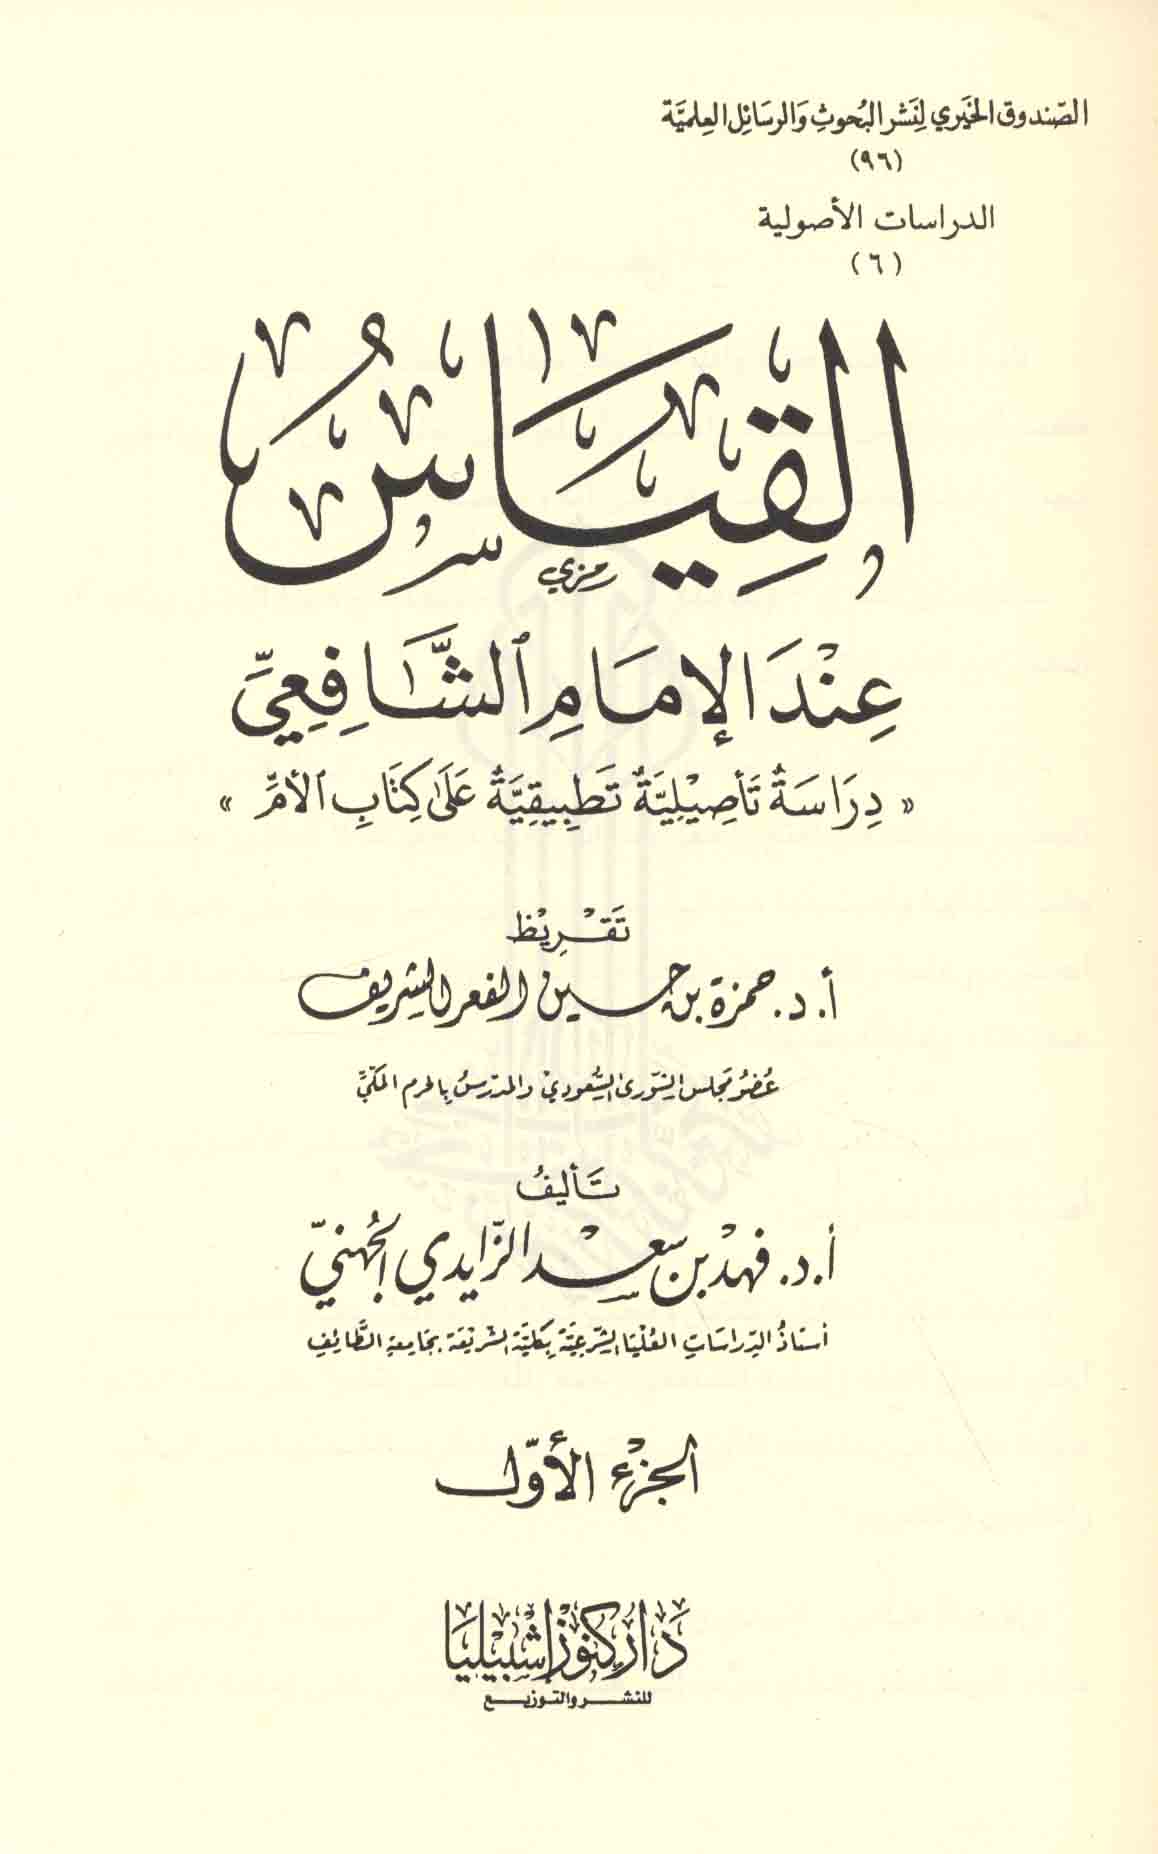 الصّندوق الخيَري لِنَشر البُحوثِ وَالرسَائل العِلميَّة
(٩٦)
الدراسات الأصولية
(٦)
القِيَاسُ
رمزي
عِنْدَ الإِمَامِ الشَّافِعِيِّ
« دِرَاسَةٌ تَأصِيْلِيَّةٌ تَطبِيقِيَّةٌ عَلىٰ كِتَابِ الأمِّ »
تَقْرِيْظ
أ. د. حمزة بن حسين الفعر الشريف
عُضوُ مَجلس الشورىٰ السُّعودي وَالمدَرّسُ بالحرم المكيِّ
تَأليفُ
أ. د. فهدْ بن سعْد الزّايدي الجُهنيّ
أستاذُ الدِّراسَاتِ العُلْيَا الشرعيَّة بِكليَّة الشريعَة بجَامعةِ الطَّائِفِ
الجزْء الأوّل
دَار كنُوز إشْبِيْليَا
للنشر والتوزيع